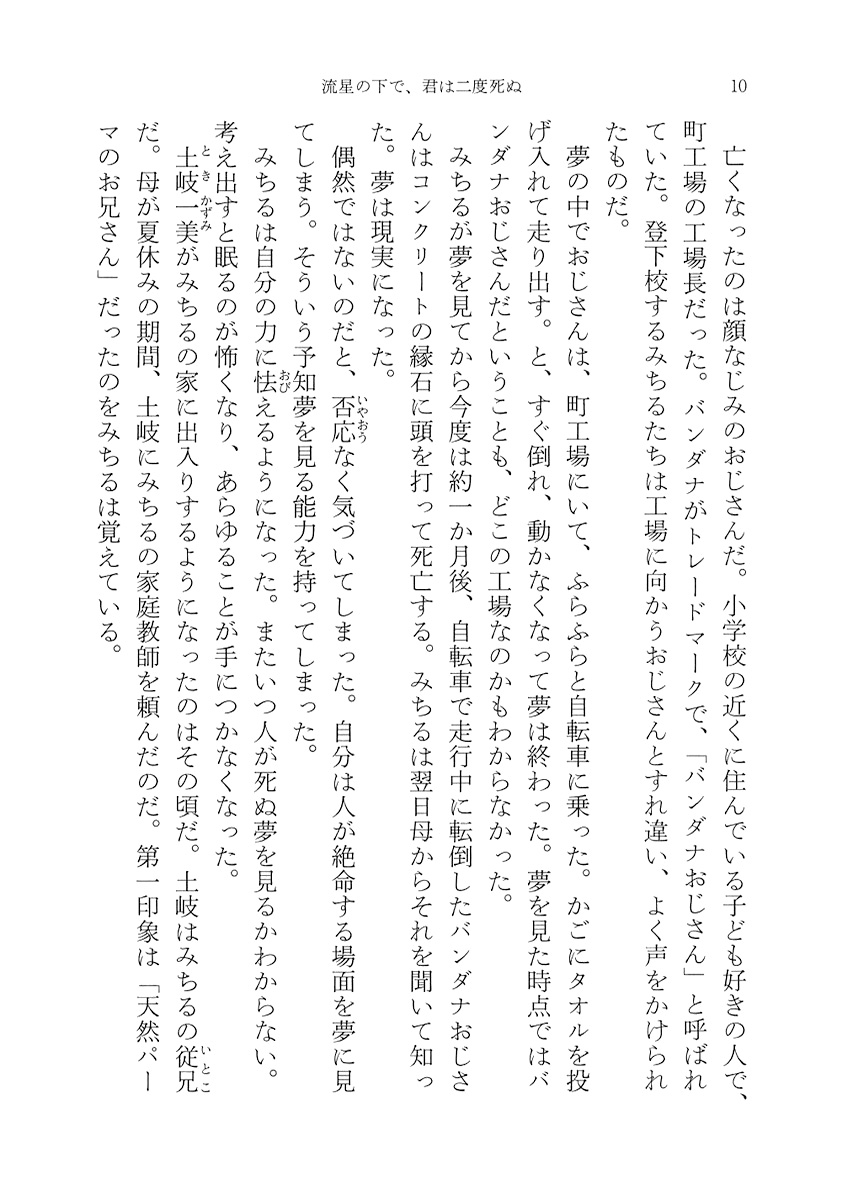 流星の下で、君は二度死ぬ
10
亡くなったのは顔なじみのおじさんだ。小学校の近くに住んでいる子ども好きの人で、
町工場の工場長だった。バンダナがトレードマークで、「バンダナおじさん」と呼ばれ
ていた。登下校するみちるたちは工場に向かうおじさんとすれ違い、よく声をかけられ
たものだ。
夢の中でおじさんは、町工場にいて、ふらふらと自転車に乗った。かごにタオルを投
げ入れて走り出す。と、すぐ倒れ、動かなくなって夢は終わった。夢を見た時点ではバ
ンダナおじさんだということも、どこの工場なのかもわからなかった。
みちるが夢を見てから今度は約一か月後、自転車で走行中に転倒したバンダナおじさ
んはコンクリートの縁石に頭を打って死亡する。みちるは翌日母からそれを聞いて知っ
た。夢は現実になった。
偶然ではないのだと、否応なく気づいてしまった。自分は人が絶命する場面を夢に見
いやおう
てしまう。そういう予知夢を見る能力を持ってしまった。
みちるは自分の力に怯えるようになった。またいつ人が死ぬ夢を見るかわからない。
おび
考え出すと眠るのが怖くなり、あらゆることが手につかなくなった。
土岐一美がみちるの家に出入りするようになったのはその頃だ。土岐はみちるの従兄
とき かずみ いとこ
だ。母が夏休みの期間、土岐にみちるの家庭教師を頼んだのだ。第一印象は「天然パー
マのお兄さん」だったのをみちるは覚えている。